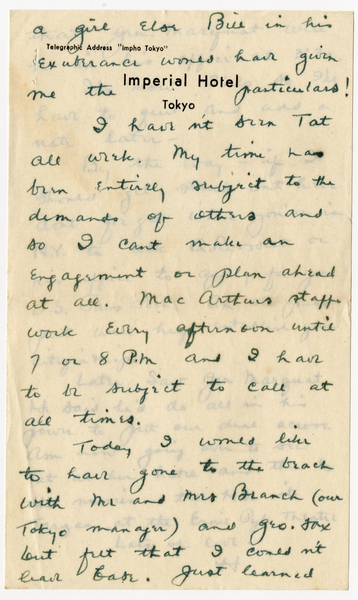 a girl Else Bill in his
Telegraphic Address "Impho Tokyo"
Exuberance would have given
Imperial Hotel
me the particulars!
Tokyo
I haven't seen Tat
all week. My time has
been Entirely subject to the
demands of others and
so I cant make an
Engagement or plan ahead
at all. Mac Arthurs staff
work Every afternoon until
7 or 8 P.M and I have
to be subject to call at
all times.
Today I would like
to have gone to the beach
with Mr and Mrs Branch (our
Tokyo manager) and Geo. Fox
but felt that I couldn't
leave Base. Just learned